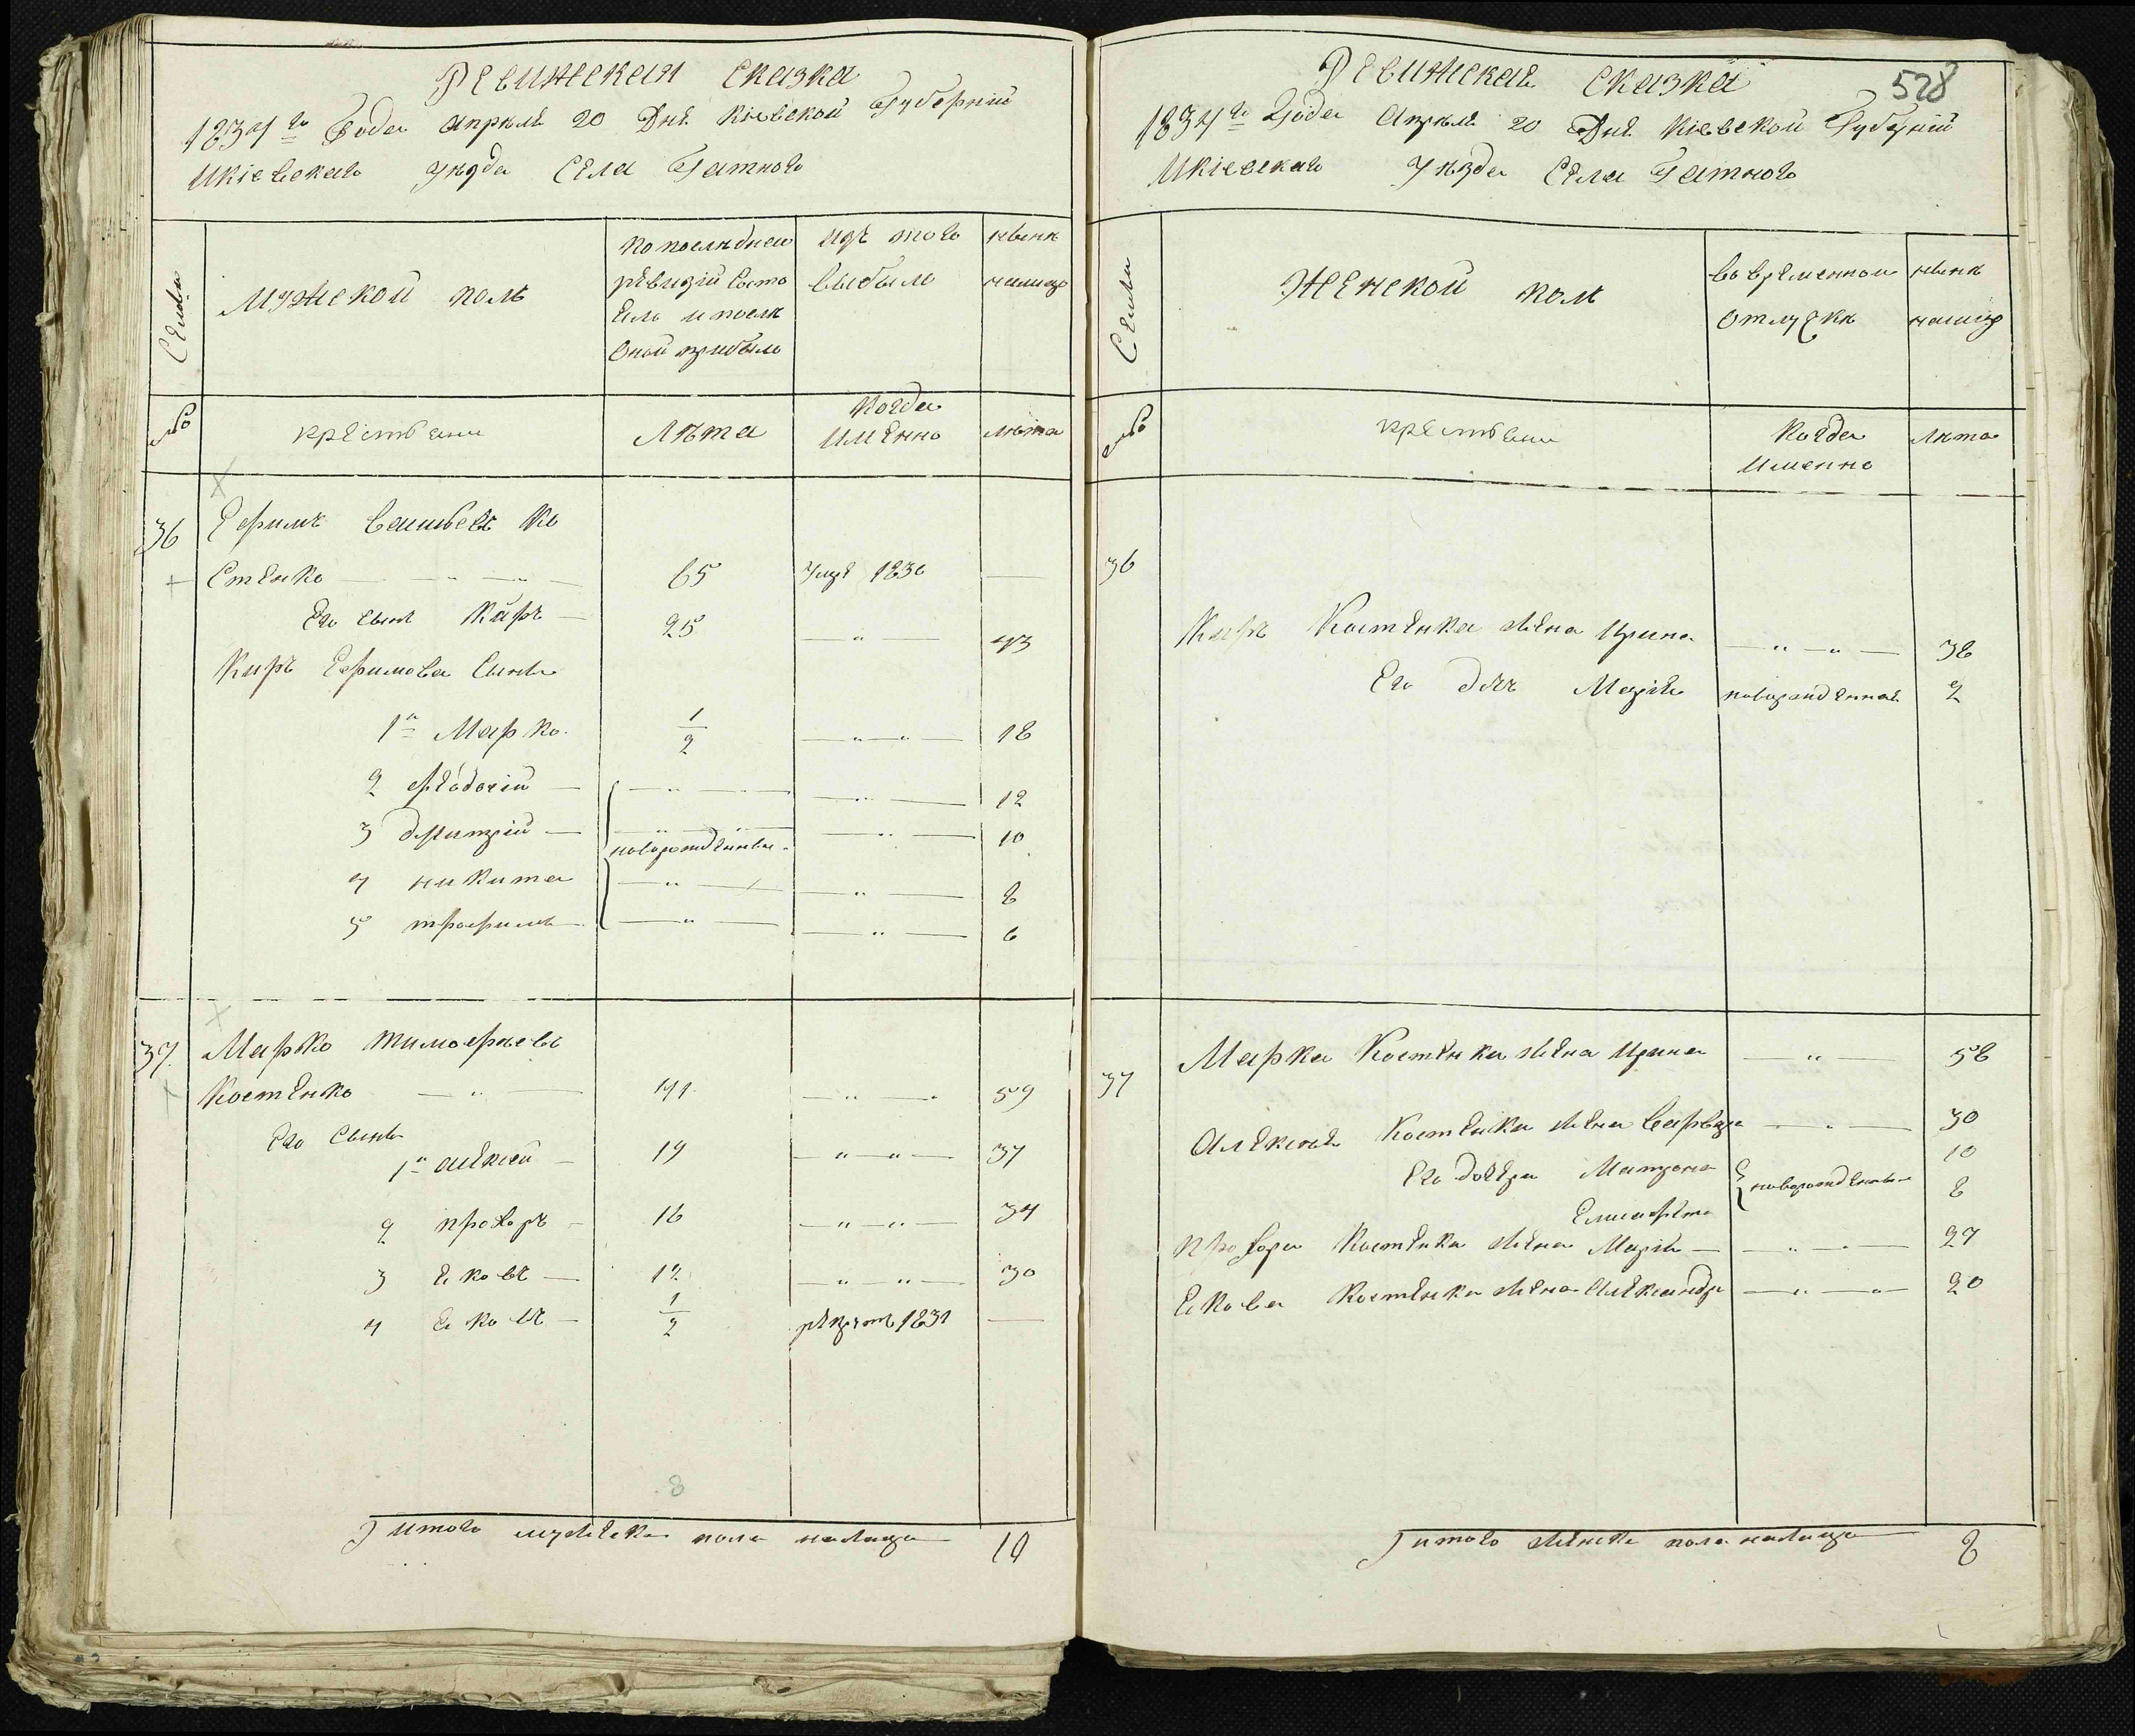 Ревижская сказка
1834го Года апреля 20 Дня Кіевской Губерніи
Икіевскаго Уѣзда Села Гатного
Семьи
Мужской полъ
По послѣднеи
ревизіи состо
ялъ и послѣ
оной прибыло
изъ того
выбыло
нынѣ
налицо
№
крестьяни
Лѣта
Когда
Именно
лѣта
36
Ефимъ Васильевъ Ко
Стенко 65 Умре 1830
Его сынъ Киръ 25 43
Киръ Ефимова Сыны
1й Марко 1/2 18
2 Феодосій 12
3 Дмитрій 10
новорожденные
4 никита 8
5 трофимъ 6
37 Марко тимофѣевъ
Костенко 41 59
Его Сыны
1й алексей 19 37
2 прохоръ 16 34
3 Яковъ 12 30
4 Яковъ 1/2 рекрутъ 1831
8
Итого мужеска пола налицо 10
Ревижская сказка
528
1834го Года Апреля 20 Дня Кіевской Губерніи
Икіевскаго Уѣзда Села Гатного
Семьи
Женской полъ
во временной
отлучкѣ
нынѣ
налицо
№
крестьяни
Когда
Именно
лѣта
36
Киръ Костенка жена Ирина 38
Его дочь Марія новорожденная 2
37
Марка Костенка жена Ирина 58
Алексея Костенка жена варвара 30
Его дочери Матрона 10
новорожденны
Елисафета 8
прохора Костенка жена Марія 27
Якова Костенка жена Александра 20
Итого женска пола налицо 8